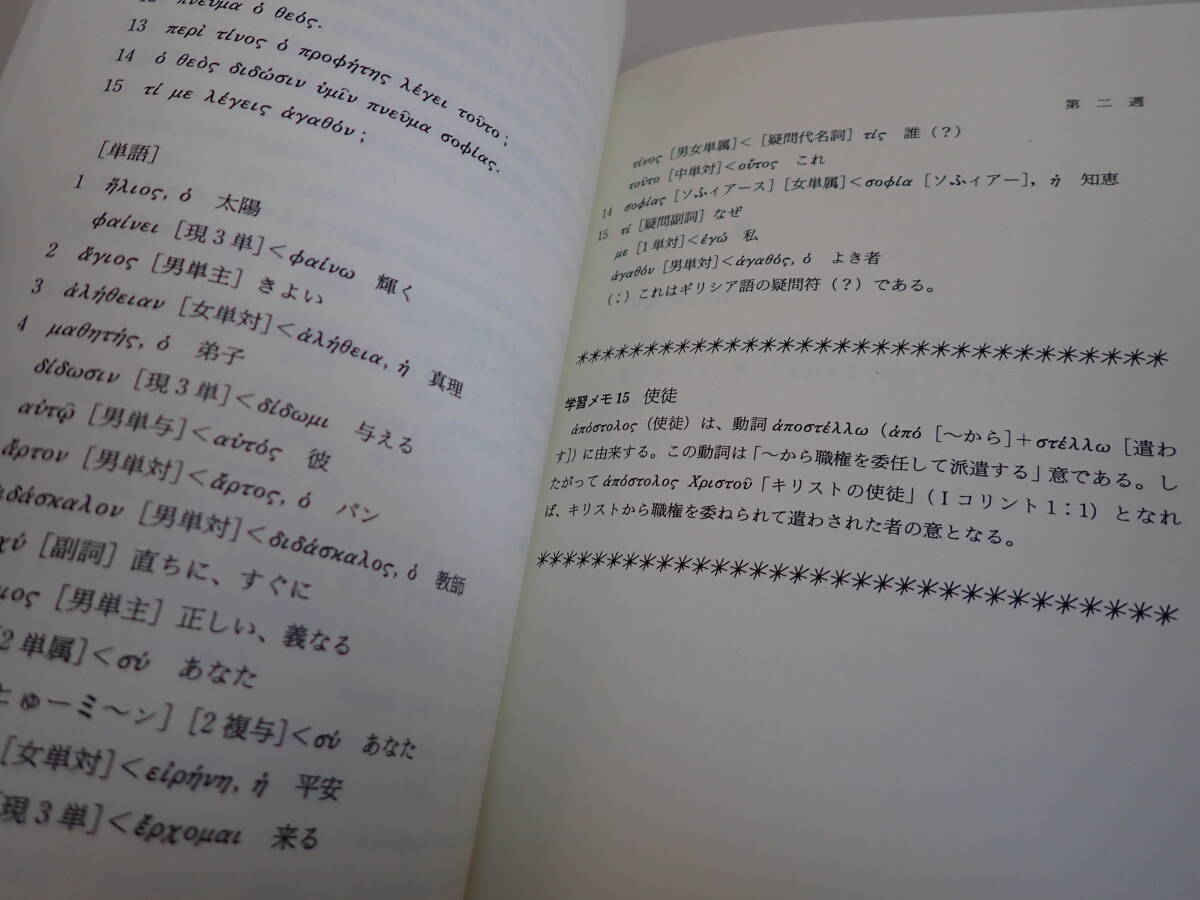 πνεῦμα ὁ θεός.
13 περὶ τίνος ὁ προφήτης λέγει τοῦτο;
14 ὁ θεὸς δίδωσιν ὑμῖν πνεῦμα σοφίας.
15 τί με λέγεις ἀγαθόν;
[単語]
1 ἥλιος, ὁ 太陽
φαίνει [現3単]<φαίνω 輝く
2 ἅγιος [男単主] きよい
3 ἀλήθειαν [女単対]<ἀλήθεια, ἡ 真理
4 μαθητής, ὁ 弟子
δίδωσιν [現3単]<δίδωμι 与える
αὐτῷ [男単与]<αὐτός 彼
ἄρτον [男単対]<ἄρτος, ὁ パン
διδάσκαλον [男単対]<διδάσκαλος, ὁ 教師
[副詞] 直ちに、すぐに
[男単主] 正しい、義なる
2単属]<σύ あなた
ゅーミ〜ン] [2複与]<σύ あなた
[女単対]<εἰρήνη, ἡ 平安
現3単]<ἔρχομαι 来る
第二週
τίνος [男女単属]< [疑問代名詞] τίς 誰(?)
τοῦτο [中単対]<οὗτος これ
14 σοφίας [ソふィアース] [女単属]<σοφία [ソふィアー], ἡ 知恵
15 τί [疑問副詞] なぜ
με [1単対]<ἐγώ 私
ἀγαθόν [男単対]<ἀγαθός, ὁ よき者
(;) これはギリシア語の疑問符(?)である。
学習メモ15 使徒
ἀπόστολος(使徒)は、動詞 ἀποστέλλω (ἀπό [〜から]+στέλλω [遣わ
す])に由来する。この動詞は「〜から職権を委任して派遣する」意である。し
たがって ἀπόστολος Χριστοῦ「キリストの使徒」(Iコリント1:1)となれ
ば、キリストから職権を委ねられて遣わされた者の意となる。